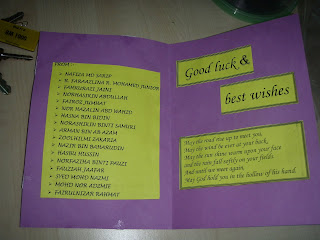 FROM:
NAFIZA MD SARIF
N. FARAAZLINA B. MOHAMED JUNIOR
FAHRURAZI JAINI
NORHASIKIN ABDULLAH
FAIROZ JUMHAT
NOR HAZALIN ABD WAHID
HASNA BIN UDIN
NORASHIKIN BINTI SAMURI
ARMAN BIN AB AZAM
ZOOLHILMI ZAKARIA
NAZIB BIN BAHARUDIN
HASRI HUSSIN
NORFAZIHA BINTI FAUZI
FAUZIAH JAAFAR
SYED MOHD NAZMI
MOHD NOR ADZMIE
FAIRULNIZAR RAHMAT
Good luck &
best wishes
May the road rise up to meet you,
May the wind be ever at your back,
May the sun shine warm upon your face
and the rain fall softly on your fields.
And until we meet again,
May God hold you in the hollow of his hand.